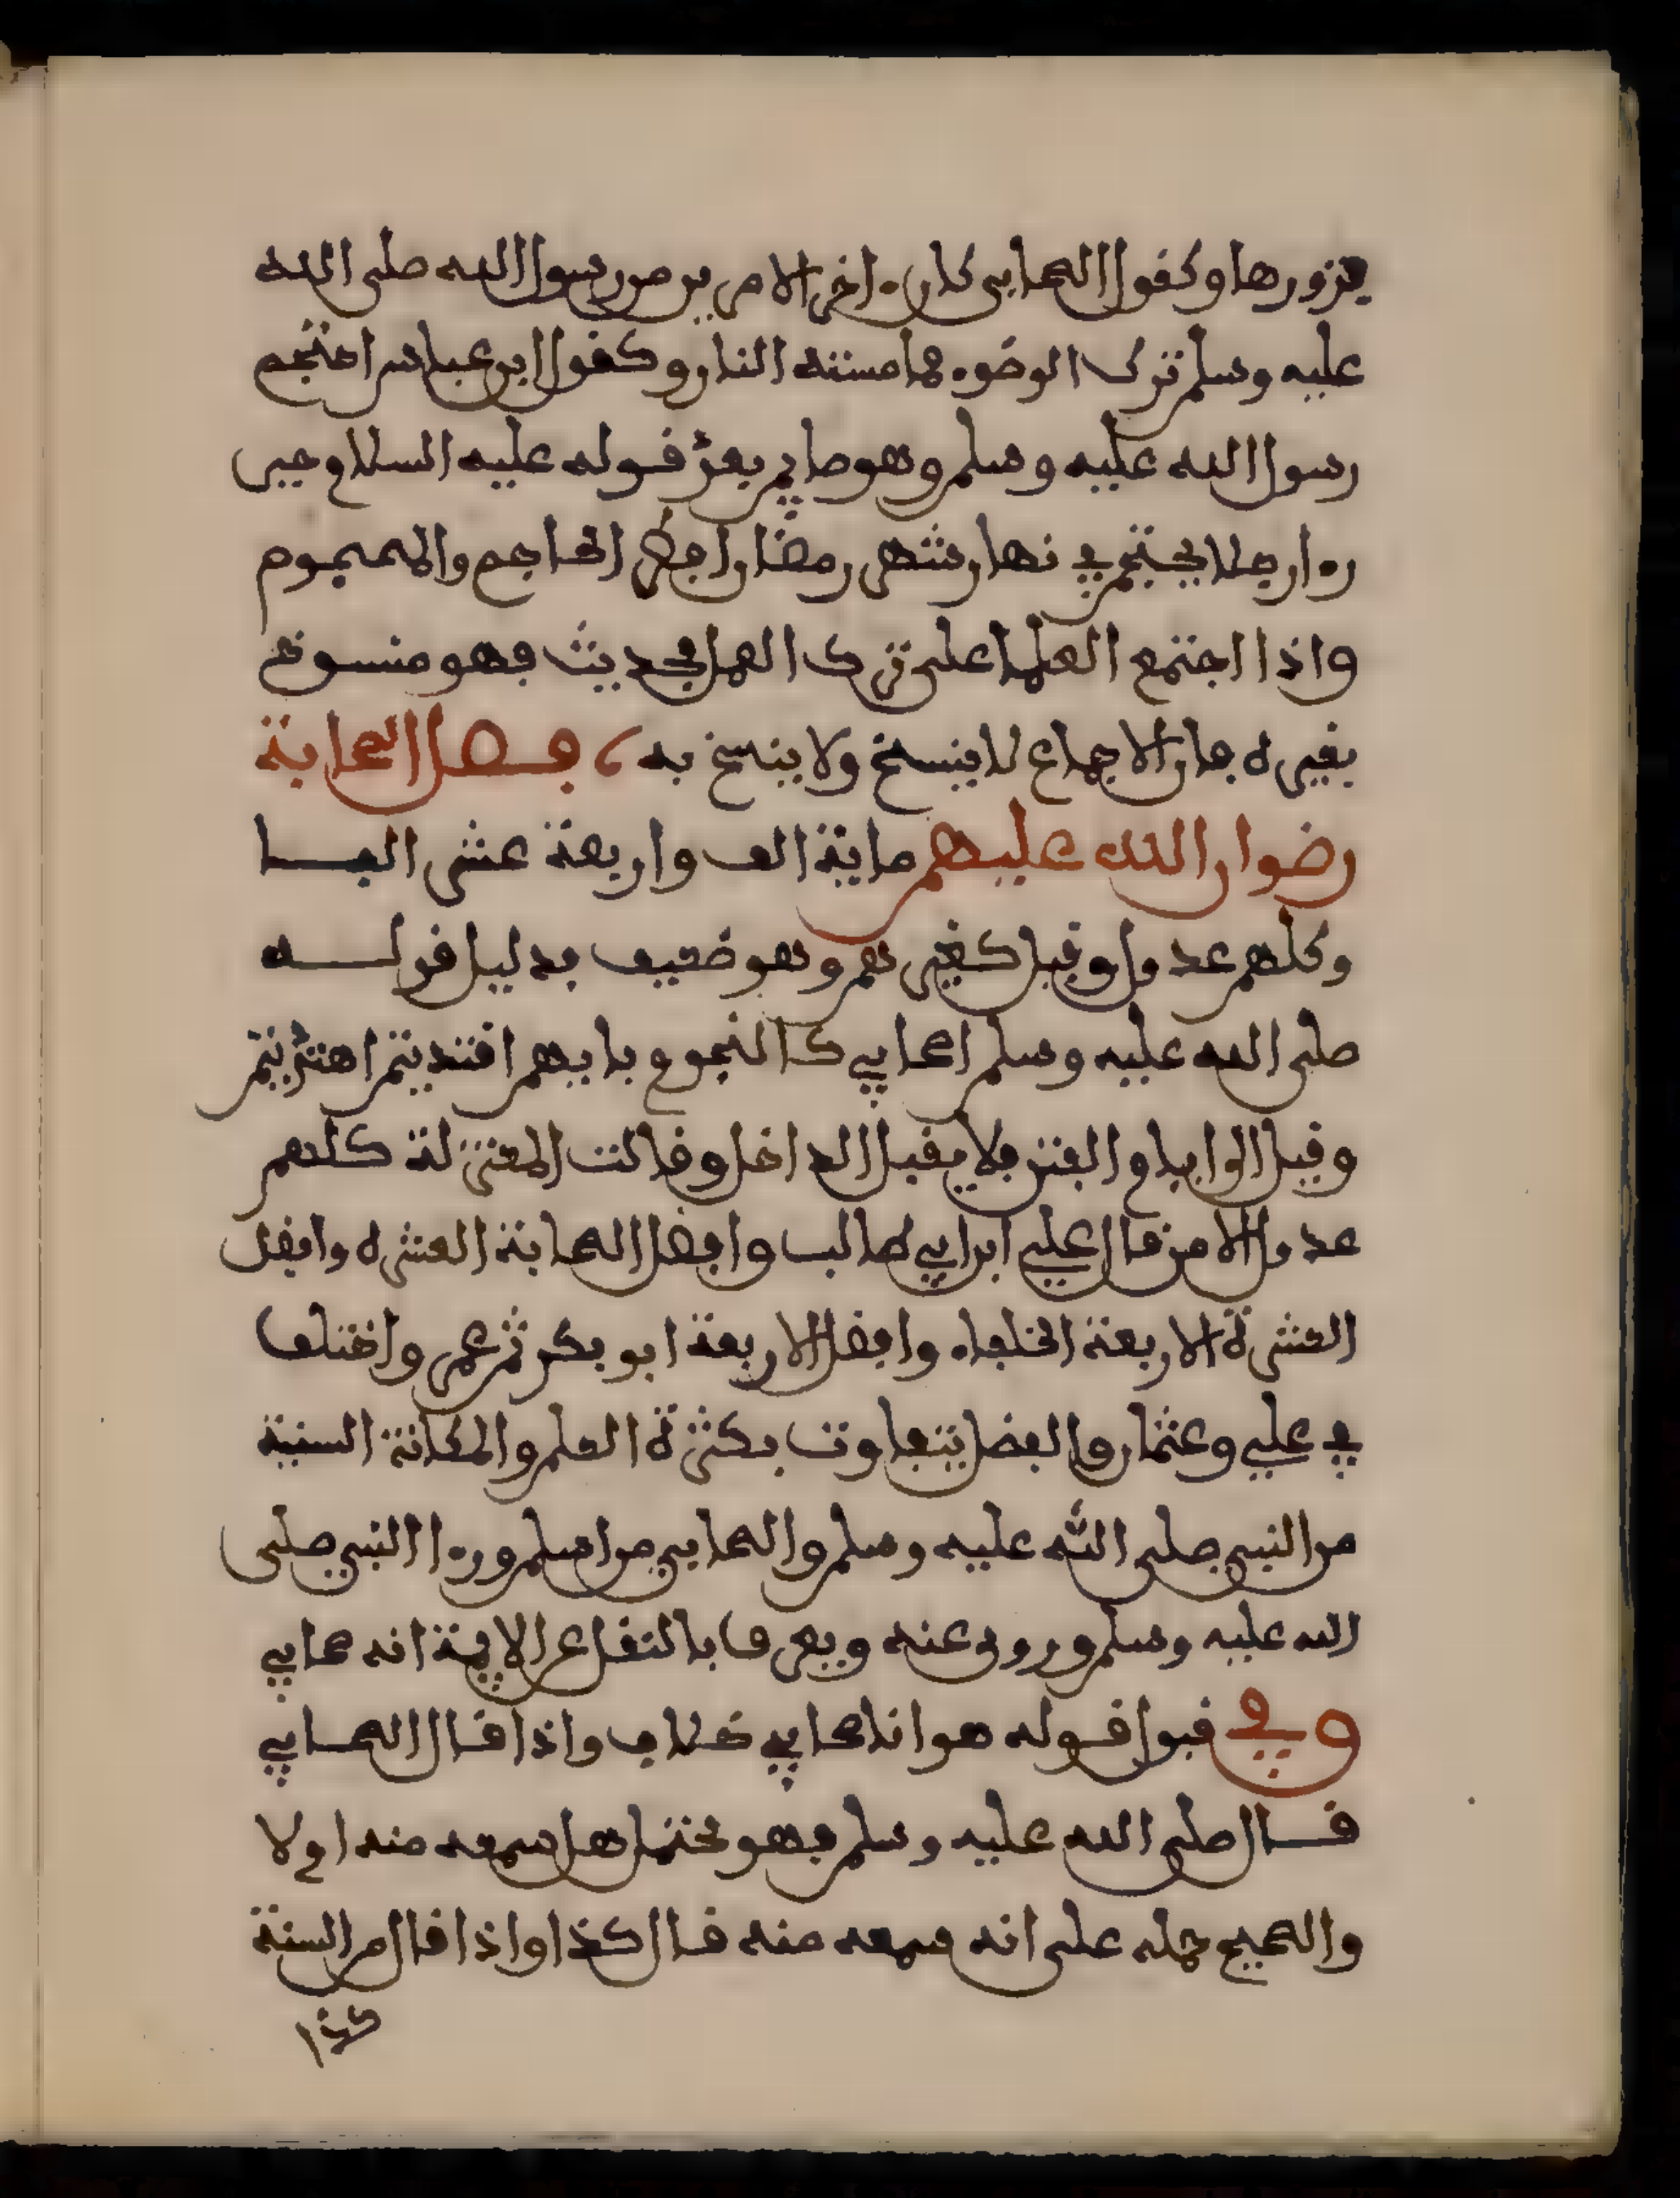 يزورها وكقول الصحابى كان ءاخر الامرين من رسول الله صلى الله
عليه وسلم ترك الوضوء مما مسته النار وكقول ابن عباس احتجم
رسول الله عليه وسلم وهو صايم بعد قوله عليه السلام حين
رءا رجلا يحتجم في نهار شهر رمضان افطر الحاجم والمحجوم
واذا اجتمع العلما على ترك العمل بحديث فهو منسوخ
بغيره فان الاجماع لا ينسخ ولا ينسخ به فصل الصحابة
رضوان الله عليهم ماية الف واربعة عشر الفا
وكلهم عدول وقيل كغيرهم وهو ضعيف بدليل قوله
صلى الله عليه وسلم اصحابي كالنجوم بايهم اقتديتم اهتديتم
وقيل الى ايام الفتن فلا يقبل الداخل وقالت المعتزلة كلهم
عدول الا من قاتل علي ابن ابي طالب وافضل الصحابة العشرة وافضل
العشرة الاربعة الخلفاء وافضل الاربعة ابو بكر ثم عمر واختلف
في علي وعثمان والفضل يتفاوت بكثرة العلم والمكانة السنية
من النبي صلى الله عليه وسلم والصحابي من اسلم ورءا النبي صلى
الله عليه وسلم وروى عنه ويعرف بالنقل عن الايمة انه صحابي
وفي قبول قوله هو انا صحابي خلاف واذا قال الصحابي
قال صلى الله عليه وسلم فهو محتمل هل سمعه منه ام لا
والصحيح حمله على انه سمعه منه قال كذا واذا قال من السنة
كذا